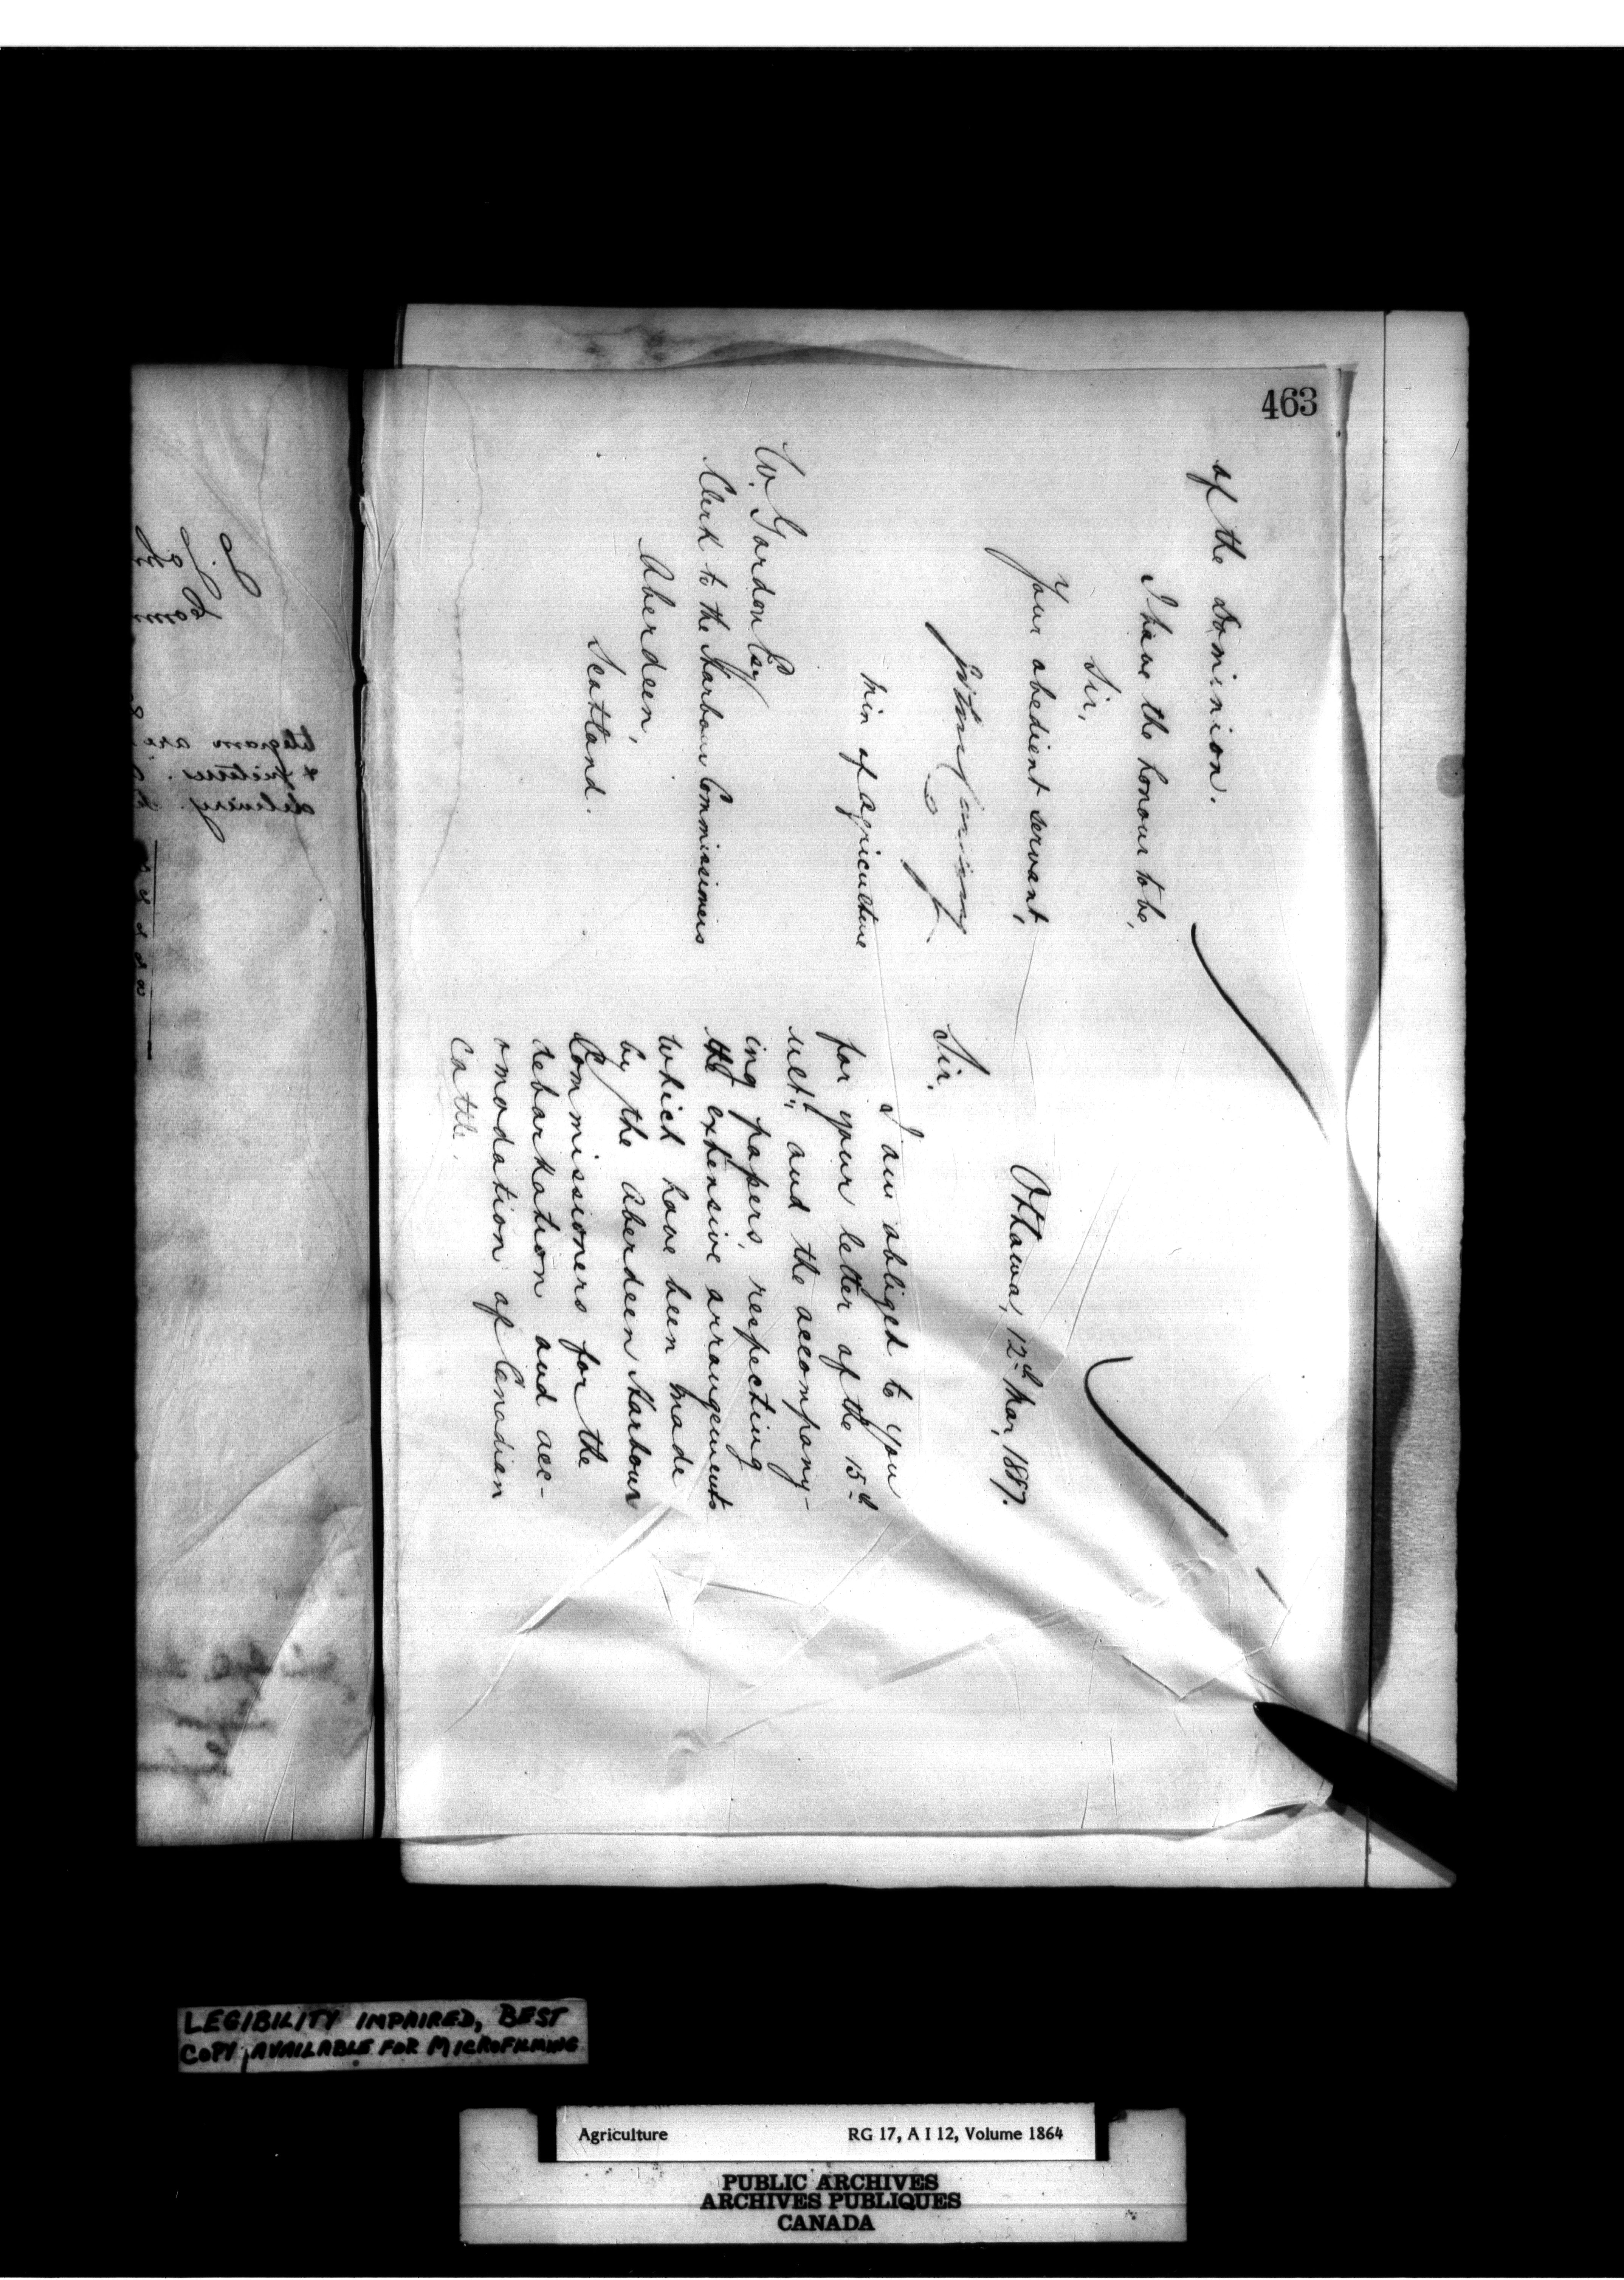 463
of the Dominion.
I have the honour to be,
Sir,
Your obedient servant,
Min of Agriculture
W. Gordon Esq
Clerk to the Harbour Commissioners
Aberdeen,
Scotland.
Ottawa, 12th Mar, 1887.
Sir,
I am obliged to you
for your letter of the 15th
ult" and the accompany-
ing papers, respecting
the extensive arrangements
which have been made
by the Aberdeen Harbour
Commissioners for the
debarkation and acc-
omodation of Canadian
Cattle.
LEGIBILITY IMPAIRED, BEST
COPY AVAILABLE FOR MICROFILMING
Agriculture RG 17, A I 12, Volume 1864
PUBLIC ARCHIVES
ARCHIVES PUBLIQUES
CANADA